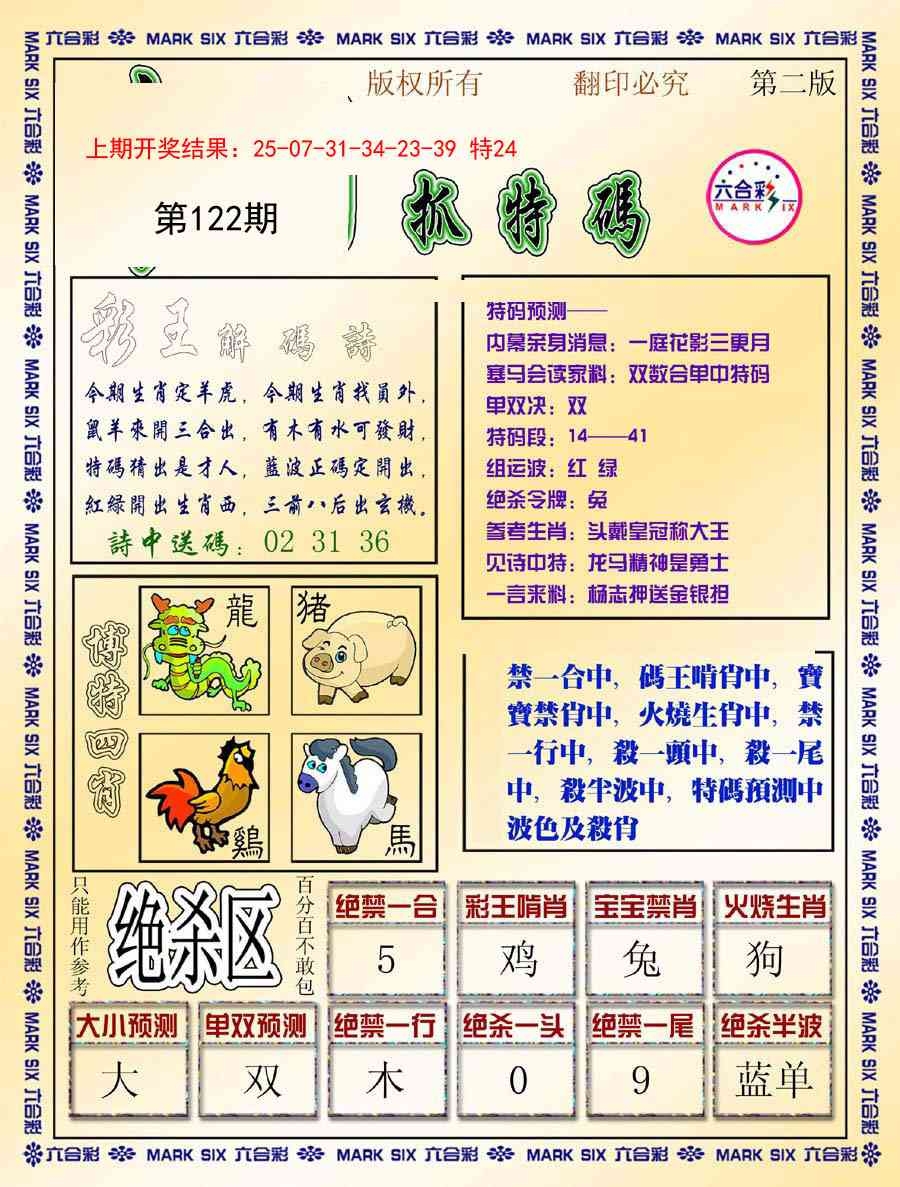 六合彩 MARK SIX 六合彩 MARK SIX 六合彩 MARK SIX 六合彩 MARK SIX 六合彩
版权所有 翻印必究 第二版
上期开奖结果：25-07-31-34-23-39 特24
第122期
抓特碼
六合彩
MARK SIX
彩王解碼詩
今期生肖定羊虎，今期生肖找員外，
鼠羊來開三合出，有木有水可發財，
特碼猜出是才人，藍波正碼定開出，
紅綠開出生肖西，三前八后出玄機。
詩中送碼：02 31 36
特码预测——
内幕亲身消息：一庭花影三更月
塞马会读家料：双数合单中特码
单双决：双
特码段：14——41
组运波：红 绿
绝杀令牌：兔
参考生肖：头戴皇冠称大王
见诗中特：龙马精神是勇士
一言来料：杨志押送金银担
博特四肖
龍
猪
鷄
馬
禁一合中，碼王啃肖中，寶
寶禁肖中，火燒生肖中，禁
一行中，殺一頭中，殺一尾
中，殺半波中，特碼預測中
波色及殺肖
只能用作参考
绝杀区
百分百不敢包
绝禁一合 彩王啃肖 宝宝禁肖 火烧生肖
5 鸡 兔 狗
大小预测 单双预测 绝禁一行 绝杀一头 绝禁一尾 绝杀半波
大 双 木 0 9 蓝单
六合彩 MARK SIX 六合彩 MARK SIX 六合彩 MARK SIX 六合彩 MARK SIX 六合彩